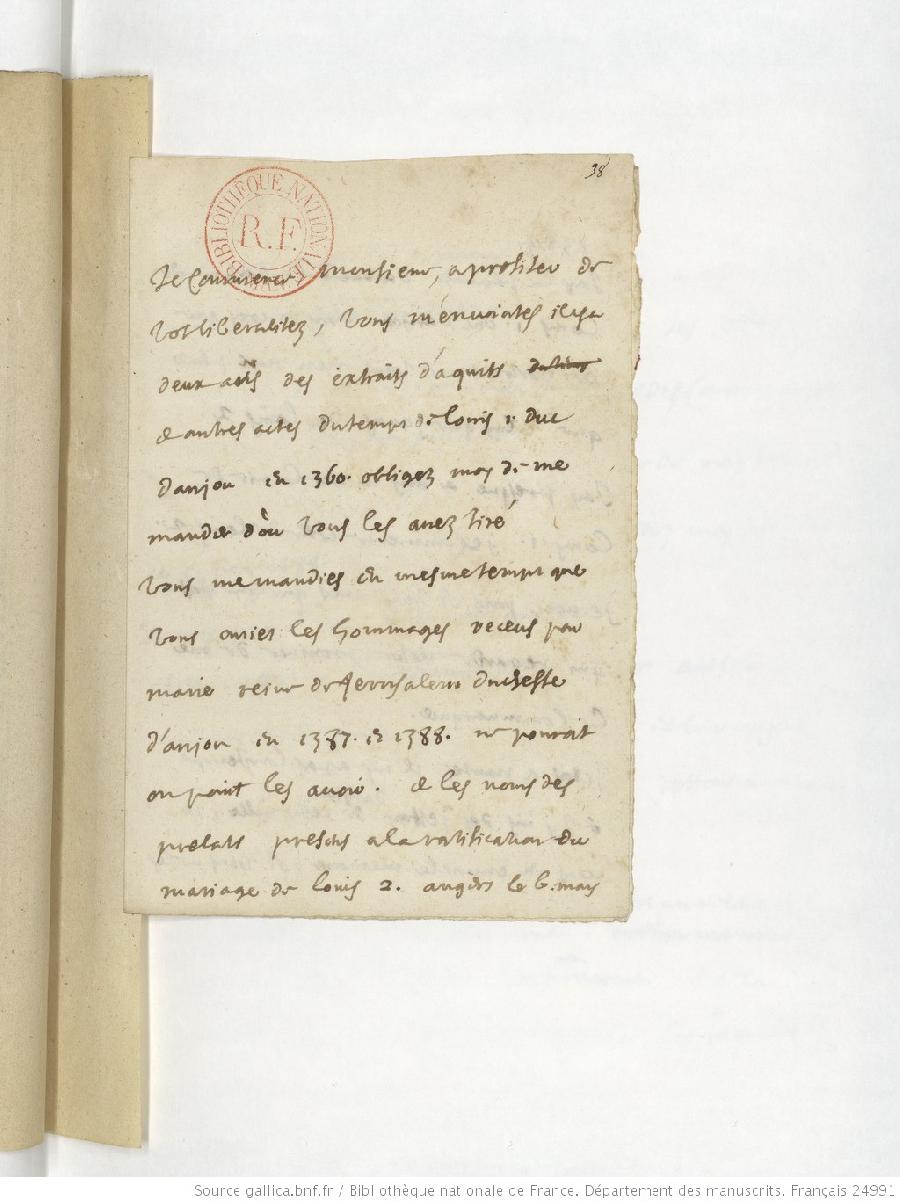 38
BIBLIOTHEQUE NATIONALE
R.F.
Je Commence monsieur, a profiter de
vos liberalitez, vous m'énuoiates il y a
deux ans des extraits d'aquits
& autres actes du temps de louis 1. duc
d'anjou en 1360. obligez moy de me
mander d'où vous les avez tiré
vous me mandies en mesme temps que
vous aviez les hommages receus par
marie reine de Jerusalem duchesse
d'anjou en 1387. et 1388. ne pourait
on point les avoir. & les noms des
prelats presens a la ratification du
mariage de louis 2. angers le 6. may
Source gallica.bnf.fr / Bibliothèque nationale de France. Département des manuscrits. Français 24991